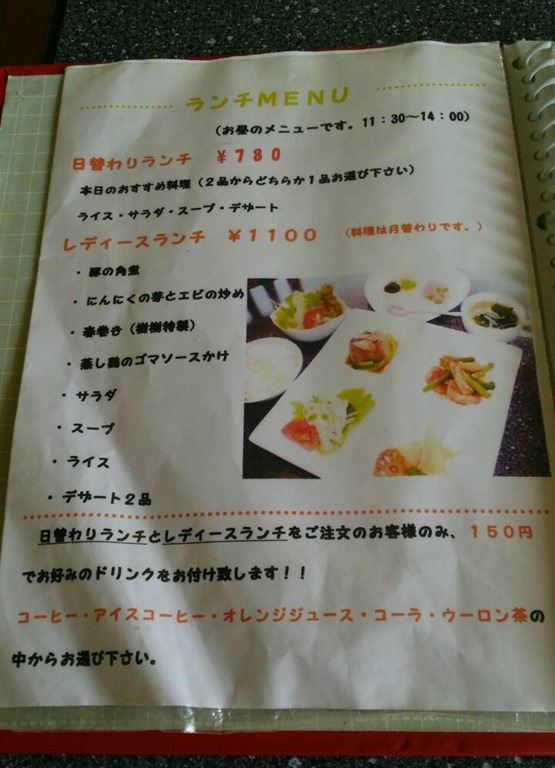 ランチMENU
（お昼のメニューです。11：30～14：00）
日替わりランチ ￥780
本日のおすすめ料理（2品からどちらか1品お選び下さい）
ライス・サラダ・スープ・デザート
レディースランチ ￥1100 （料理は月替わりです。）
・豚の角煮
・にんにくの芽とエビの炒め
・春巻き（樹樹特製）
・蒸し鶏のゴマソースかけ
・サラダ
・スープ
・ライス
・デザート2品
日替わりランチとレディースランチをご注文のお客様のみ、150円
でお好みのドリンクをお付け致します！！
コーヒー・アイスコーヒー・オレンジジュース・コーラ・ウーロン茶の
中からお選び下さい。